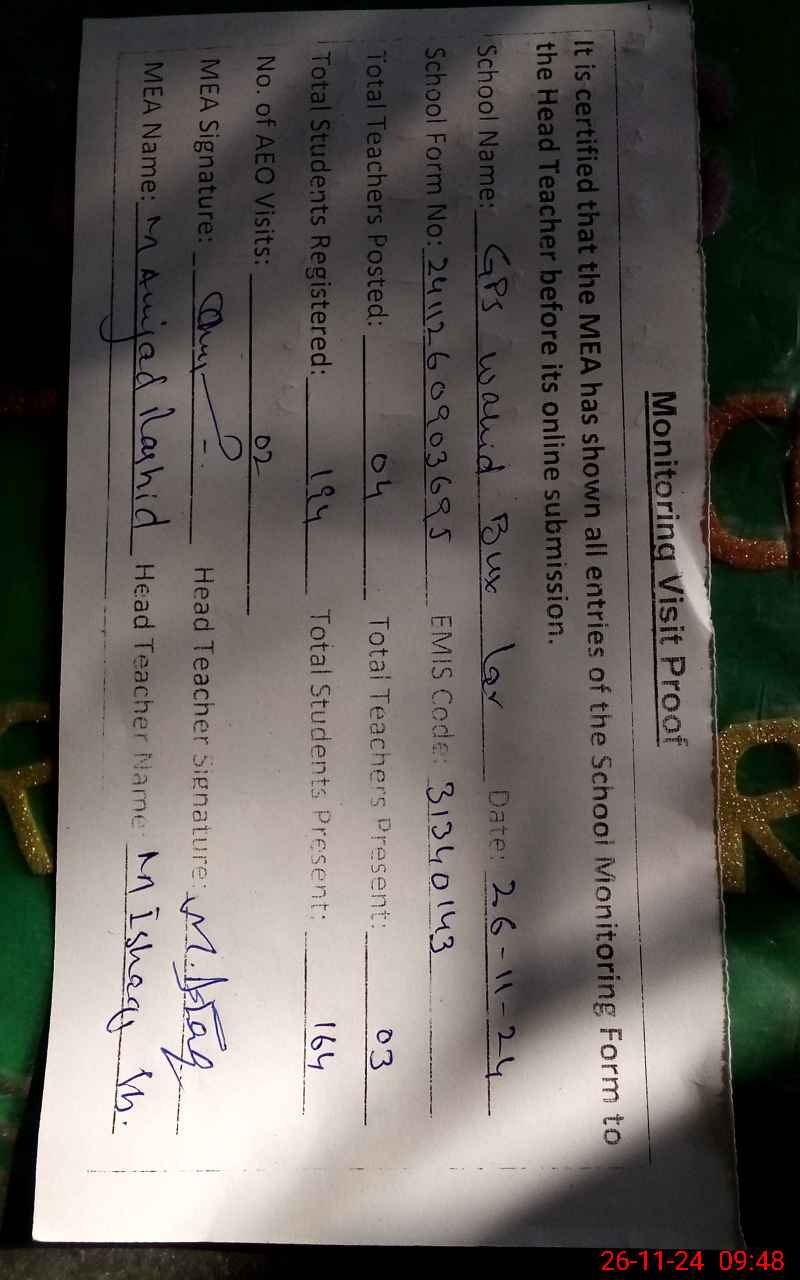 Monitoring Visit Proof
It is certified that the MEA has shown all entries of the School Monitoring Form to
the Head Teacher before its online submission.
School Name: GPS Wahid Bux Lar Date: 26-11-24
School Form No: 2411260903695 EMIS Code: 31340143
Total Teachers Posted: 04 Total Teachers Present: 03
Total Students Registered: 194 Total Students Present: 164
No. of AEO Visits: 02
MEA Signature: Head Teacher Signature: M. Ishaq
MEA Name: M Amjad Rashid Head Teacher Name: M Ishaq
26-11-24 09:48